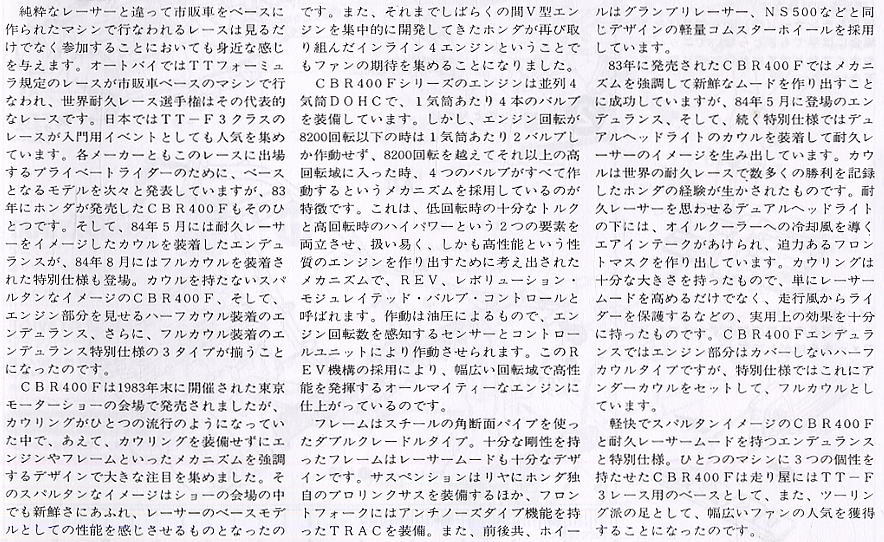 純粋なレーサーと違って市販車をベースに
作られたマシンで行なわれるレースは見るだ
けでなく参加することにおいても身近な感じ
を与えます。オートバイではＴＴフォーミュ
ラ規定のレースが市販車ベースのマシンで行
なわれ、世界耐久レース選手権はその代表的
なレースです。日本ではＴＴ－Ｆ３クラスの
レースが入門用イベントとしても人気を集め
ています。各メーカーともこのレースに出場
するプライベートライダーのために、ベース
となるモデルを次々と発表していますが、83
年にホンダが発売したＣＢＲ400Ｆもそのひ
とつです。そして、84年５月には耐久レーサ
ーをイメージしたカウルを装着したエンデュ
ランスが、84年８月にはフルカウルを装着さ
れた特別仕様も登場。カウルを持たないスパ
ルタンなイメージのＣＢＲ400Ｆ、そして、
エンジン部分を見せるハーフカウル装着のエ
ンデュランス、さらに、フルカウル装着のエ
ンデュランス特別仕様の３タイプが揃うこと
になったのです。
ＣＢＲ400Ｆは1983年末に開催された東京
モーターショーの会場で発売されましたが、
カウリングがひとつの流行のようになってい
た中で、あえて、カウリングを装備せずにエ
ンジンやフレームといったメカニズムを強調
するデザインで大きな注目を集めました。そ
のスパルタンなイメージはショーの会場の中
でも新鮮さにあふれ、レーサーのベースモデ
ルとしての性能を感じさせるものとなったの
です。また、それまでしばらくの間Ｖ型エン
ジンを集中的に開発してきたホンダが再び取
り組んだインライン４エンジンということで
もファンの期待を集めることになりました。
ＣＢＲ400Ｆシリーズのエンジンは並列４
気筒ＤＯＨＣで、１気筒あたり４本のバルブ
を装備しています。しかし、エンジン回転が
8200回転以下の時は１気筒あたり２バルブし
か作動せず、8200回転を越えてそれ以上の高
回転域に入った時、４つのバルブがすべて作
動するというメカニズムを採用しているのが
特徴です。これは、低回転時の十分なトルク
と高回転時のハイパワーという２つの要素を
両立させ、扱い易く、しかも高性能という性
質のエンジンを作り出すために考え出された
メカニズムで、ＲＥＶ、レボリューション・
モジュレイテッド・バルブ・コントロールと
呼ばれます。作動は油圧によるもので、エン
ジン回転数を感知するセンサーとコントロー
ルユニットにより作動させられます。このＲ
ＥＶ機構の採用により、幅広い回転域で高性
能を発揮するオールマイティーなエンジンに
仕上がっているのです。
フレームはスチールの角断面パイプを使っ
たダブルクレードルタイプ。十分な剛性を持
ったフレームはレーサームードも十分なデザ
インです。サスペンションはリヤにホンダ独
自のプロリンクサスを装備するほか、フロン
トフォークにはアンチノーズダイブ機能を持
ったＴＲＡＣを装備。また、前後共、ホイー
ルはグランプリレーサー、ＮＳ500などと同
じデザインの軽量コムスターホイールを採用
しています。
83年に発売されたＣＢＲ400Ｆではメカニ
ズムを強調して新鮮なムードを作り出すこと
に成功していますが、84年５月に登場のエン
デュランス、そして、続く特別仕様ではデュ
アルヘッドライトのカウルを装着して耐久レ
ーサーのイメージを生み出しています。カウ
ルは世界の耐久レースで数多くの勝利を記録
したホンダの経験が生かされたものです。耐
久レーサーを思わせるデュアルヘッドライト
の下には、オイルクーラーへの冷却風を導く
エアインテークがあけられ、迫力あるフロン
トマスクを作り出しています。カウリングは
十分な大きさを持ったもので、単にレーサー
ムードを高めるだけでなく、走行風からライ
ダーを保護するなどの、実用上の効果を十分
に持ったものです。ＣＢＲ400Ｆエンデュラ
ンスではエンジン部分はカバーしないハーフ
カウルタイプですが、特別仕様ではこれにア
ンダーカウルをセットして、フルカウルとし
ています。
軽快でスパルタンイメージのＣＢＲ400Ｆ
と耐久レーサームードを持つエンデュランス
と特別仕様。ひとつのマシンに３つの個性を
持たせたＣＢＲ400Ｆは走り屋にはＴＴ－Ｆ
３レース用のベースとして、また、ツーリン
グ派の足として、幅広いファンの人気を獲得
することになったのです。